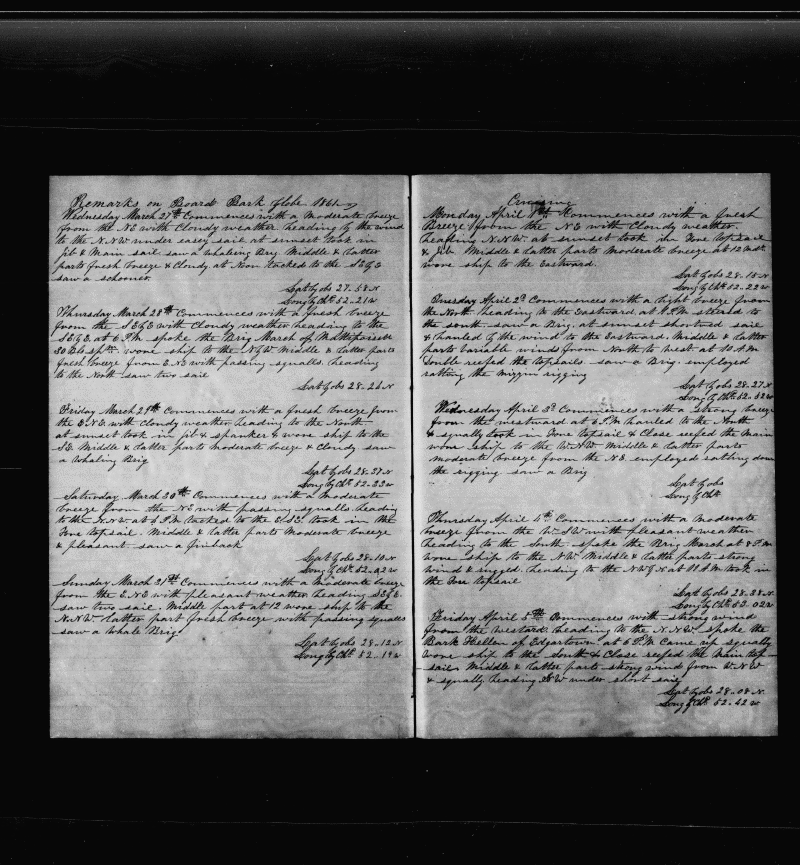 Remarks on Board Bark Globe 1861
Wednesday March 27th Commences with a Moderate breeze
from the NE with Cloudy weather heading by the wind
to the N.N.W under easey sail at sunset took in
jib & Main sail saw a whaling Brig Middle & latter
parts fresh breeze & Cloudy at Noon tacked to the SEbE
saw a schooner
Lat by obs 27-58 N
Long by Ch 52-21 W
Thursday March 28th Commences with a fresh breeze
from the SEbE with Cloudy weather heading to the
SEbE at 6 P.M. spoke the Brig March of Mattapoisett
30 bbls spm wore ship to the NbW Middle & latter parts
fresh breeze from ENE with passing squalls heading
to the North saw two sail
Lat by obs 28-26 N
Friday March 29th Commences with a fresh breeze from
the ENE with Cloudy weather heading to the North
at sunset took in jib & spanker & wore ship to the
SE Middle & latter parts moderate breeze & Cloudy saw
a whaling Brig
Lat by obs 28-37 N
Long by Ch 52-23 W
Saturday March 30th Commences with a moderate
breeze from the NE with passing squalls heading
to the NNW at 6 P.M tacked to the ESE took in the
Fore topsail Middle & latter parts Moderate breeze
& pleasant saw a finback
Lat by obs 28-10 N
Long by Ch 52-02 W
Sunday March 31st Commences with a moderate breeze
from the ENE with pleasant weather heading SEbE
saw two sail. Middle part at 12 wore ship to the
N.N.W latter part fresh breeze with passing squalls
saw a whale Brig
Lat by obs 28-12 N
Long by Ch 52-19 W
Cruising
Monday April 1st Commences with a fresh
Breeze from the NE with Cloudy weather
heading N.N.W. at sunset took in Fore topsail
& jib Middle & latter parts Moderate breeze at 12 Mdt
wore ship to the Eastward.
Lat by obs 28-18 N
Long by Ch 52-22 W
Tuesday April 2d Commences with a light breeze from
the North heading to the Eastward at P.M steered to
the south saw a Brig. at sunset shortned sail
& hauled by the wind to the Eastward. Middle & latter
parts variable winds from North to West at 10 A.M
double reefed the topsails saw a Brig. employed
ratling the mizzen rigging
Lat by obs 28-27 N
Long by Ch 52-52 W
Wednesday April 3d Commences with a strong breeze
from the westward at 6 P.M hauled to the North
& squally took in Fore topsail & Close reefed the Main
wore ship to the WNW Middle & latter parts
moderate breeze from the NE employed ratling down
the rigging saw a Brig
Lat by obs
Long by Ch
Thursday April 4th Commences with a moderate
breeze from the W.SW with pleasant weather
heading to the South spoke the Brig March at 8 P.M
wore ship to the NW Middle & latter parts strong
wind & rugged. heading to the NWbN at 11 A.M took in
the Fore topsail
Lat by obs 28-38 N
Long by Ch 53-02 W
Friday April 5th Commences with strong wind
from the westard heading to the N.N.W. spoke the
Bark Hellen of Edgartown at 6 P.M Came up squally
wore ship to the South & Close reefed the Main top
sail Middle & latter parts strong wind from W.N.W
& squally heading SW under short sail
Lat by obs 28-08 N
Long by Ch 52-42 W